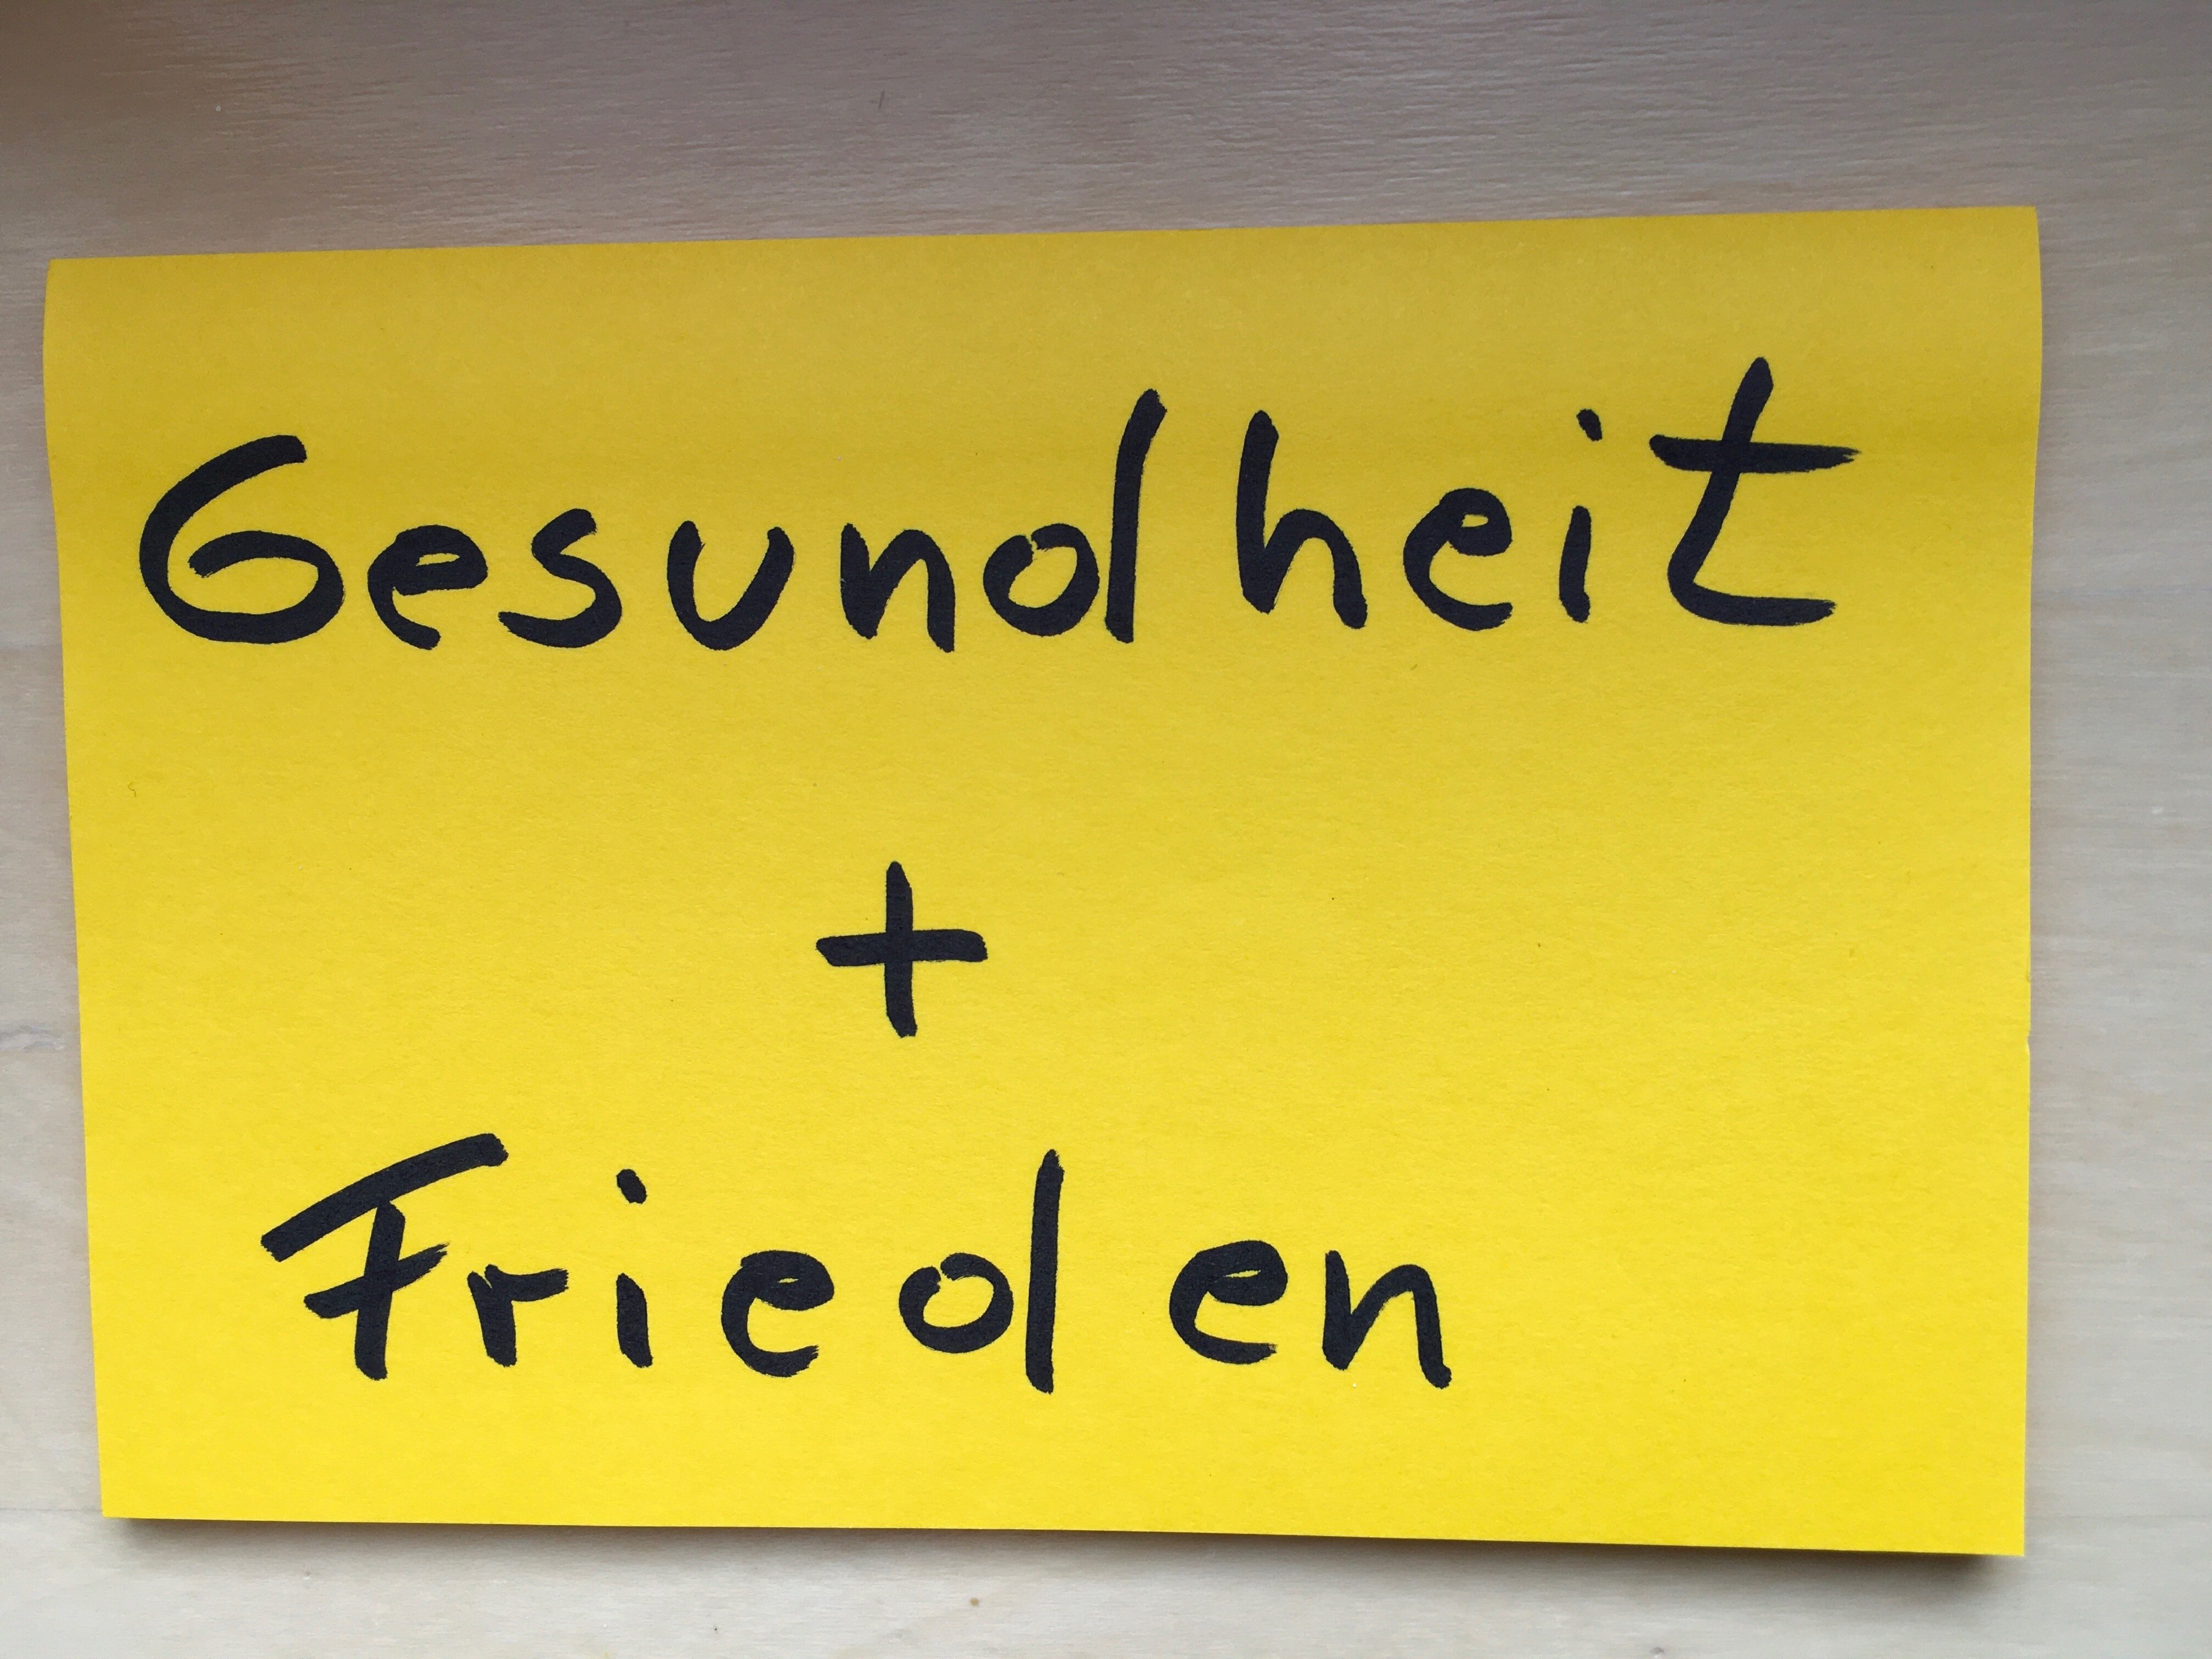 Gesundheit
+
Frieden